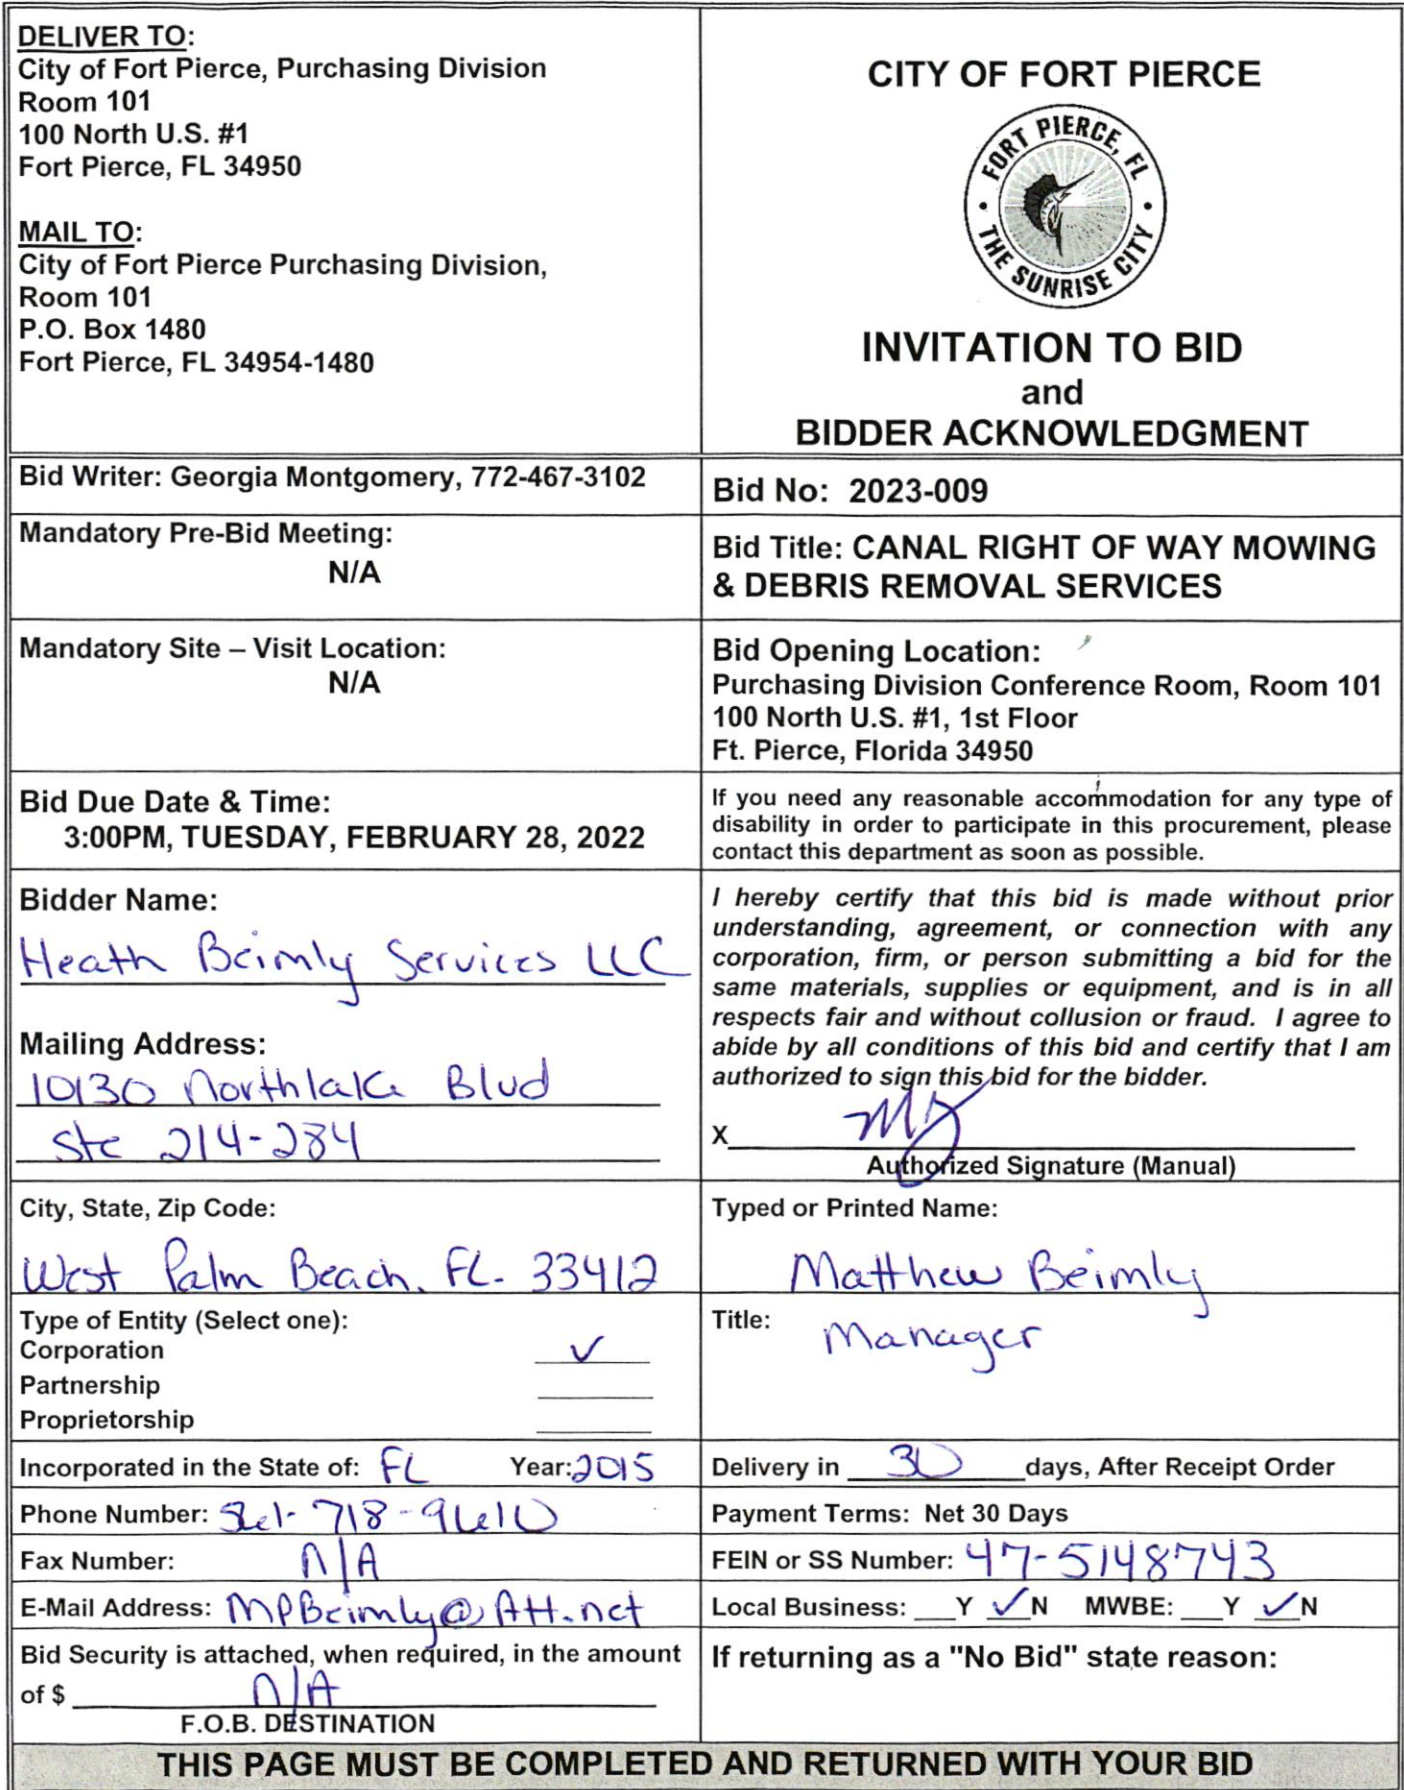 DELIVER TO:
City of Fort Pierce, Purchasing Division
Room 101
100 North U.S. #1
Fort Pierce, FL 34950
MAIL TO:
City of Fort Pierce Purchasing Division,
Room 101
P.O. Box 1480
Fort Pierce, FL 34954-1480
CITY OF FORT PIERCE
FORT PIERCE, FL
• THE SUNRISE CITY •
INVITATION TO BID
and
BIDDER ACKNOWLEDGMENT
Bid Writer: Georgia Montgomery, 772-467-3102
Bid No: 2023-009
Mandatory Pre-Bid Meeting:
N/A
Bid Title: CANAL RIGHT OF WAY MOWING
& DEBRIS REMOVAL SERVICES
Mandatory Site – Visit Location:
N/A
Bid Opening Location:
Purchasing Division Conference Room, Room 101
100 North U.S. #1, 1st Floor
Ft. Pierce, Florida 34950
Bid Due Date & Time:
3:00PM, TUESDAY, FEBRUARY 28, 2022
If you need any reasonable accommodation for any type of
disability in order to participate in this procurement, please
contact this department as soon as possible.
Bidder Name:
Heath Beimly Services LLC
Mailing Address:
10130 Northlake Blvd
Ste 214-284
I hereby certify that this bid is made without prior
understanding, agreement, or connection with any
corporation, firm, or person submitting a bid for the
same materials, supplies or equipment, and is in all
respects fair and without collusion or fraud. I agree to
abide by all conditions of this bid and certify that I am
authorized to sign this bid for the bidder.
X
Authorized Signature (Manual)
City, State, Zip Code:
West Palm Beach, FL. 33412
Typed or Printed Name:
Matthew Beimly
Type of Entity (Select one):
Corporation ✓
Partnership
Proprietorship
Title: Manager
Incorporated in the State of: FL Year: 2015
Delivery in 30 days, After Receipt Order
Phone Number: 561-718-9610
Payment Terms: Net 30 Days
Fax Number: N/A
FEIN or SS Number: 47-5148743
E-Mail Address: MPBeimly@Att.net
Local Business: ___Y ✓N MWBE: ___Y ✓N
Bid Security is attached, when required, in the amount
of $ N/A
F.O.B. DESTINATION
If returning as a "No Bid" state reason:
THIS PAGE MUST BE COMPLETED AND RETURNED WITH YOUR BID